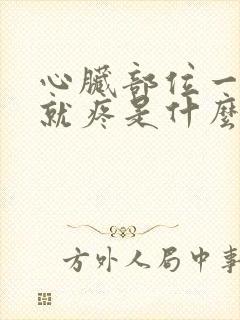 心臟部位一
就疼是什麼
方外人局中事